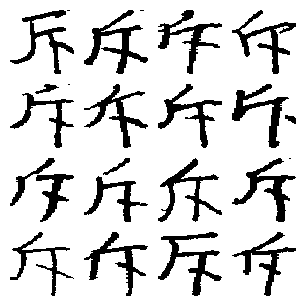 斥斥斥斥
斥斥斥斥
斥斥斥斥
斥斥斥斥